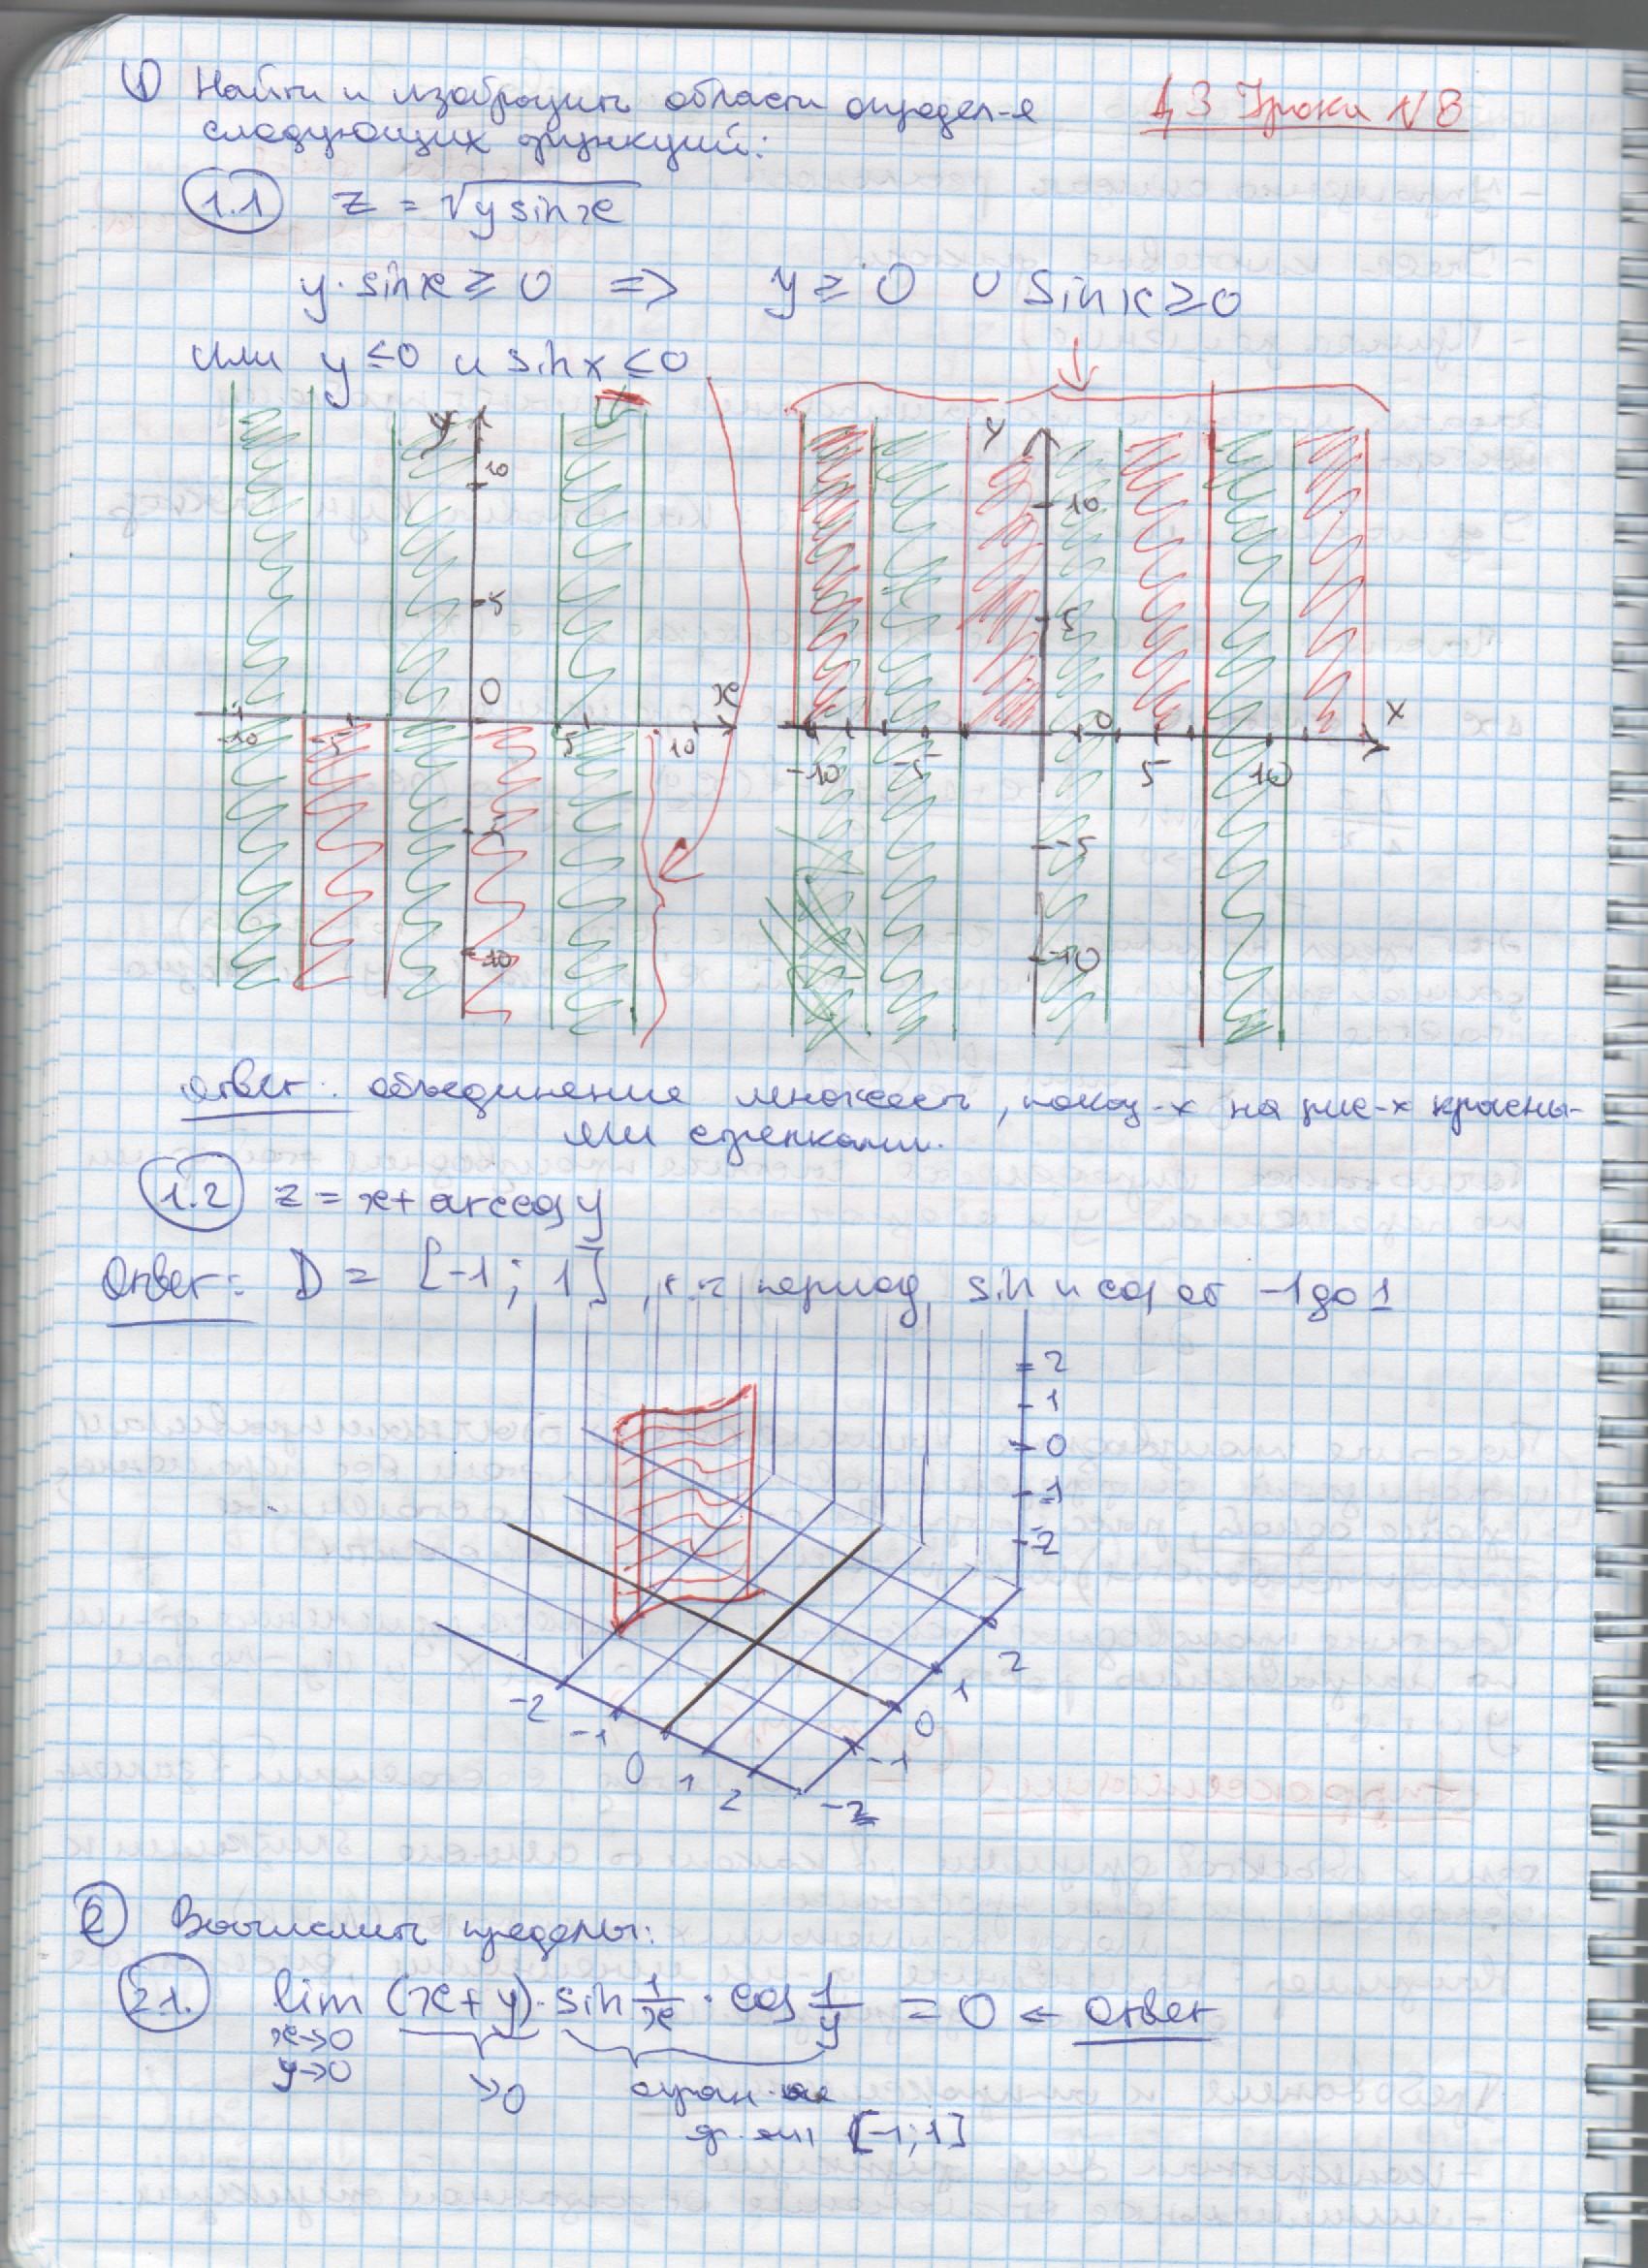 ① Найти и изобразить области определ-я
ДЗ Урока №8
следующих функций:
1.1 z = √(y sin x)
y · sin x ≥ 0 => y ≥ 0 и sin x ≥ 0
или y ≤ 0 и sin x ≤ 0
y
10
5
0
x
-10 -5 5 10
-5
-10
y
10
5
0
x
-10 -5 5 10
-5
-10
Ответ: объединение множеств, показ-х на рис-х красны-
ми стрелками.
1.2 z = x + arccos y
Ответ: D = [-1; 1], т.к период sin и cos от -1 до 1
2
1
0
-1
-2
-2 -1 0 1 2
2 1 0 -1 -2
② Вычислить пределы:
2.1. lim (x + y) · sin 1/x · cos 1/y = 0 ← Ответ
x→0
y→0
→0
[-1; 1]